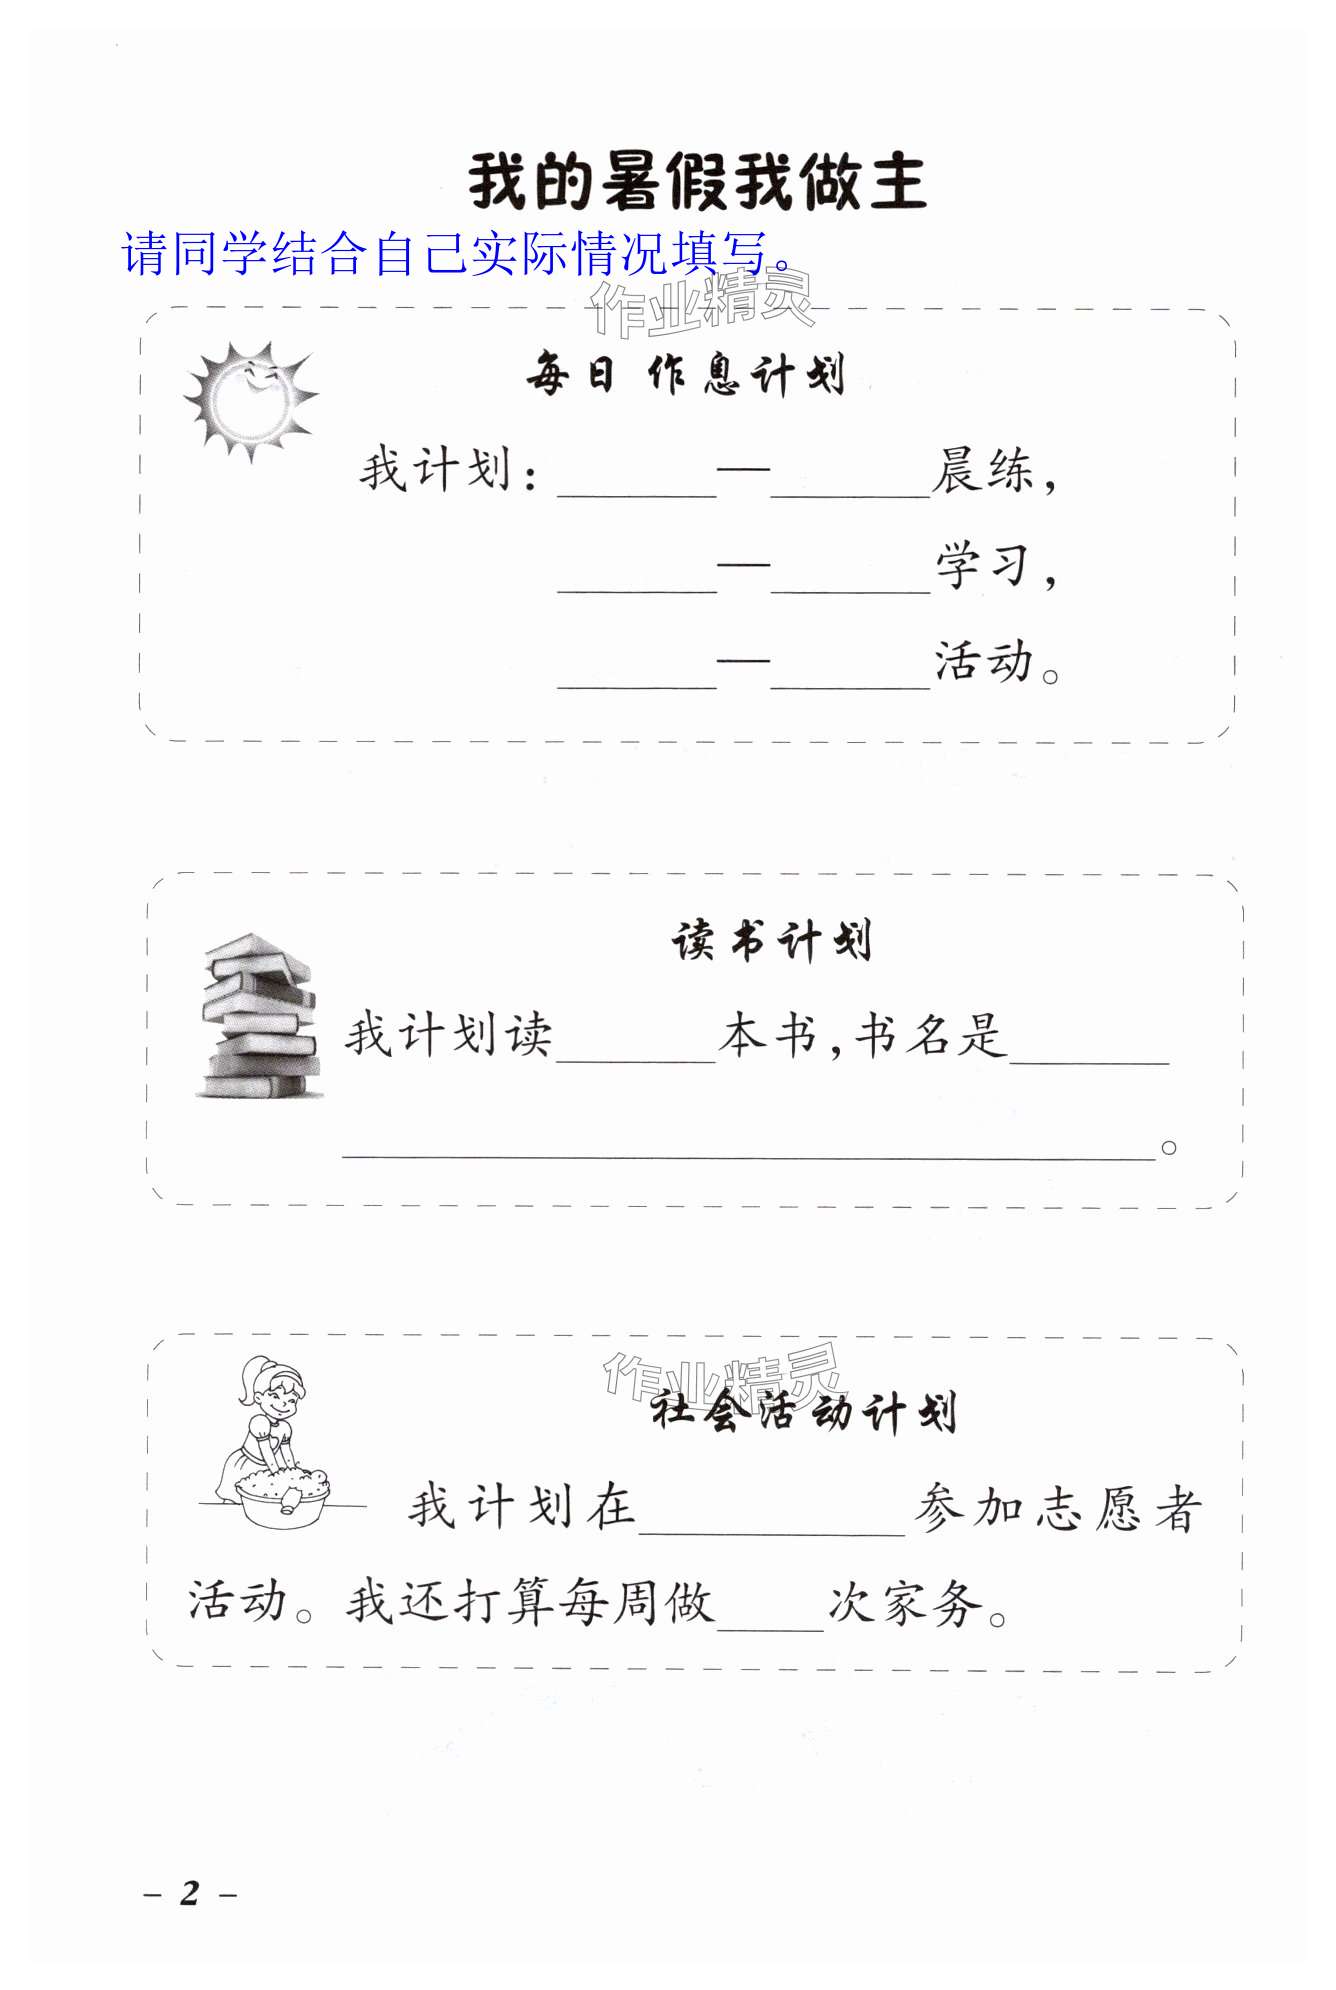 我的暑假我做主
请同学结合自己实际情况填写。
作业精灵
每日作息计划
我计划：______—______晨练，
______—______学习，
______—______活动。
读书计划
我计划读______本书，书名是______
______________________________。
作业精灵
社会活动计划
我计划在__________参加志愿者
活动。我还打算每周做____次家务。
- 2 -